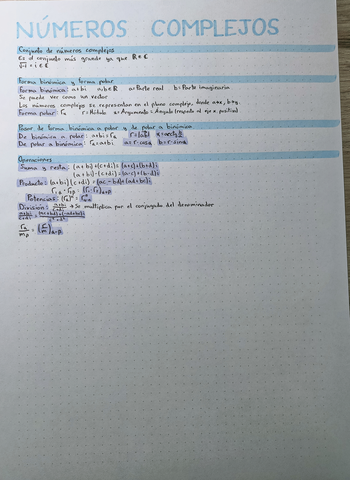 NÚMEROS COMPLEJOS
Conjunto de números complejos
Es el conjunto más grande ya que ℝ ∈ ℂ
√-1 = i ∈ ℂ
Forma binómica y forma polar
Forma binómica: a+bi a,b∈ℝ a=Parte real b=Parte imaginaria
Se puede ver como un vector
Los números complejos se representan en el plano complejo, donde a=x, b=y.
Forma polar: r_α r=Módulo α=Argumento (respecto al eje x positivo)
Pasar de forma binómica a polar y de polar a binómica
De binómica a polar: a+bi=r_α
De polar a binómica: r_α=a+bi a=r·cosα b=r·sinα
Operaciones
Suma y resta: (a+bi)+(c+di)=(a+c)+(b+d)i
(a+bi)-(c+di)=(a-c)+(b-d)i
Producto: (a+bi)(c+di)=(ac-bd)+(ad+bc)i
Potencias:
División: (a+bi)/(c+di) → Se multiplica por el conjugado del denominador